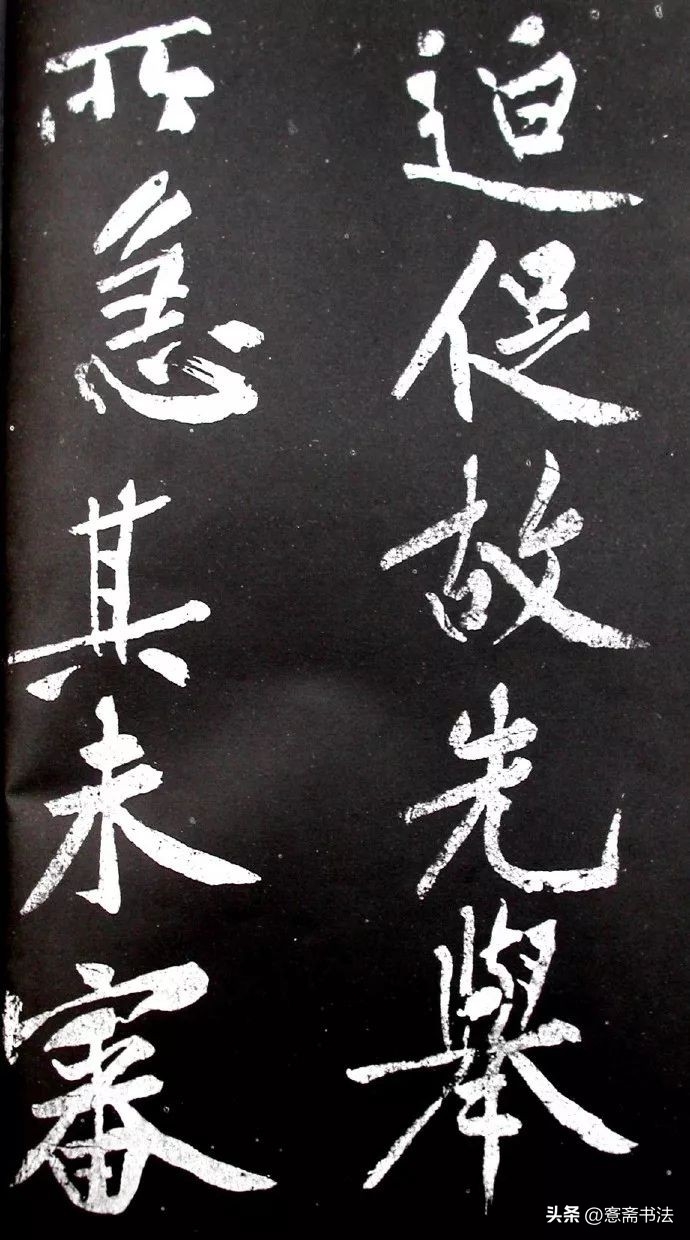 迫促故先舉
所急其未審
头条 @愙斋书法